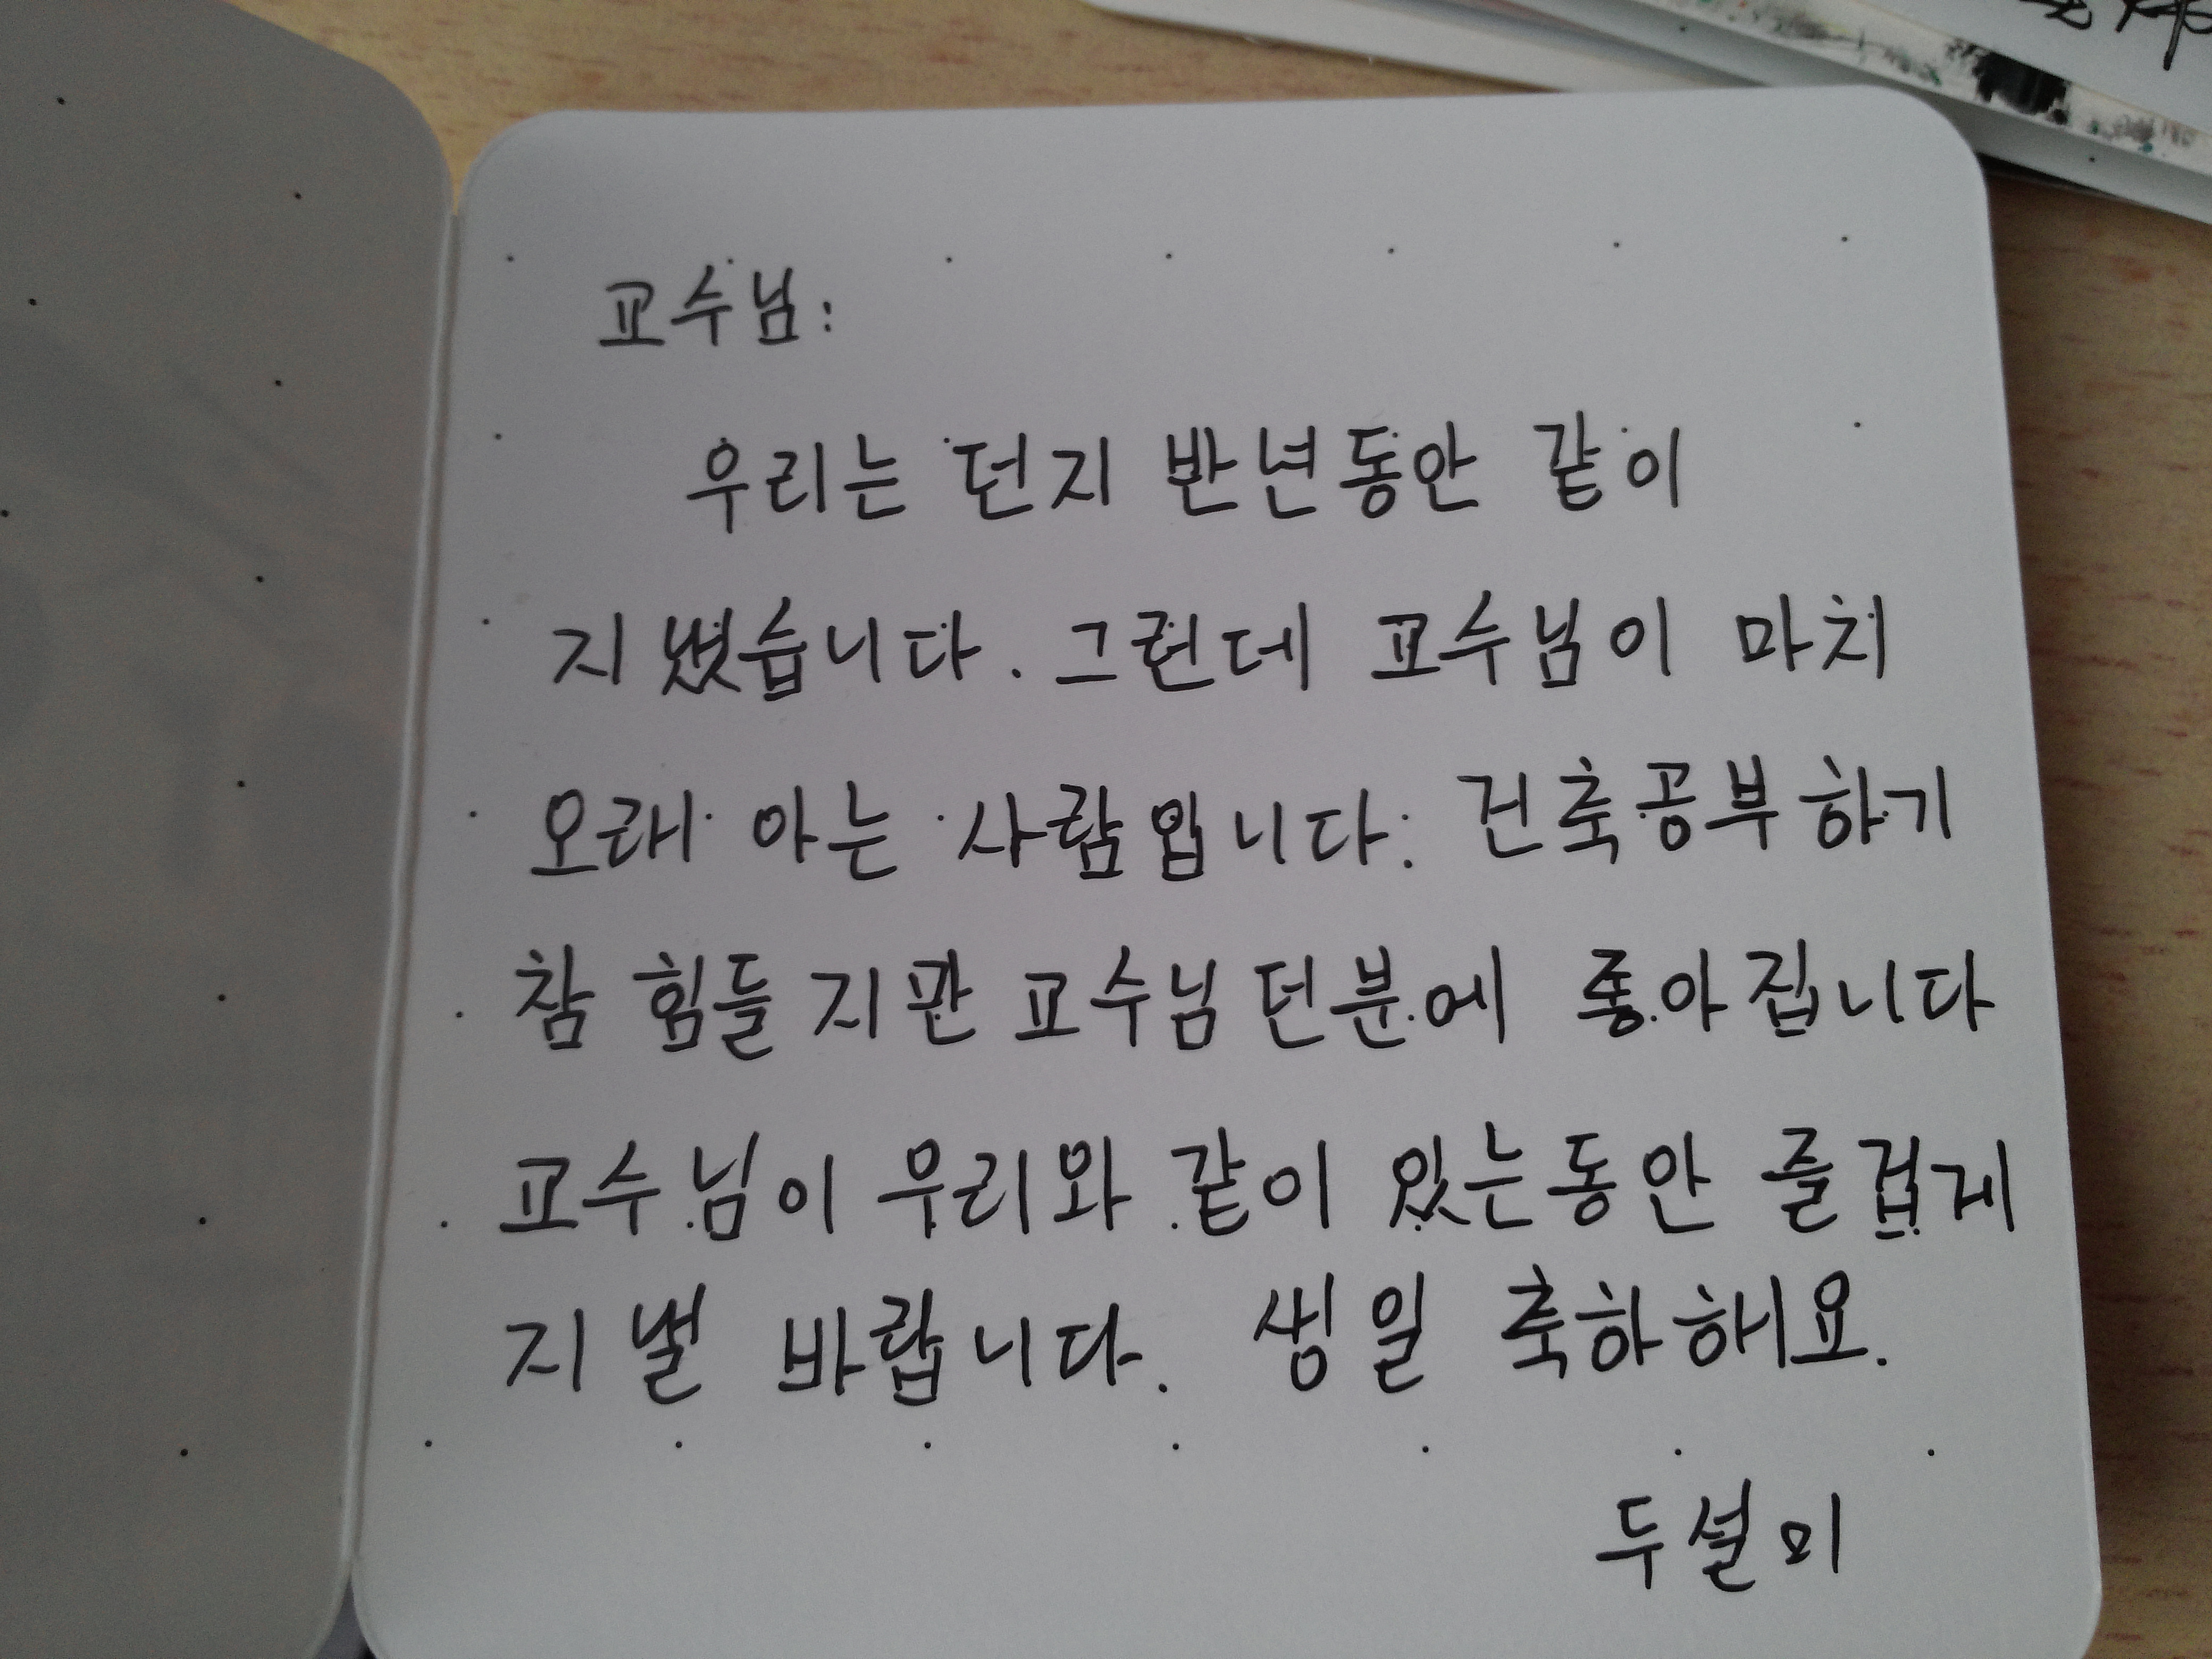 교수님:
우리는 던지 반년동안 같이
지냈습니다. 그런데 교수님이 마치
오래 아는 사람입니다. 건축공부하기
참 힘들지만 교수님 던분에 좋아집니다
교수님이 우리와 같이 있는동안 즐겁게
지낼 바랍니다. 생일 축하해요.
두설미